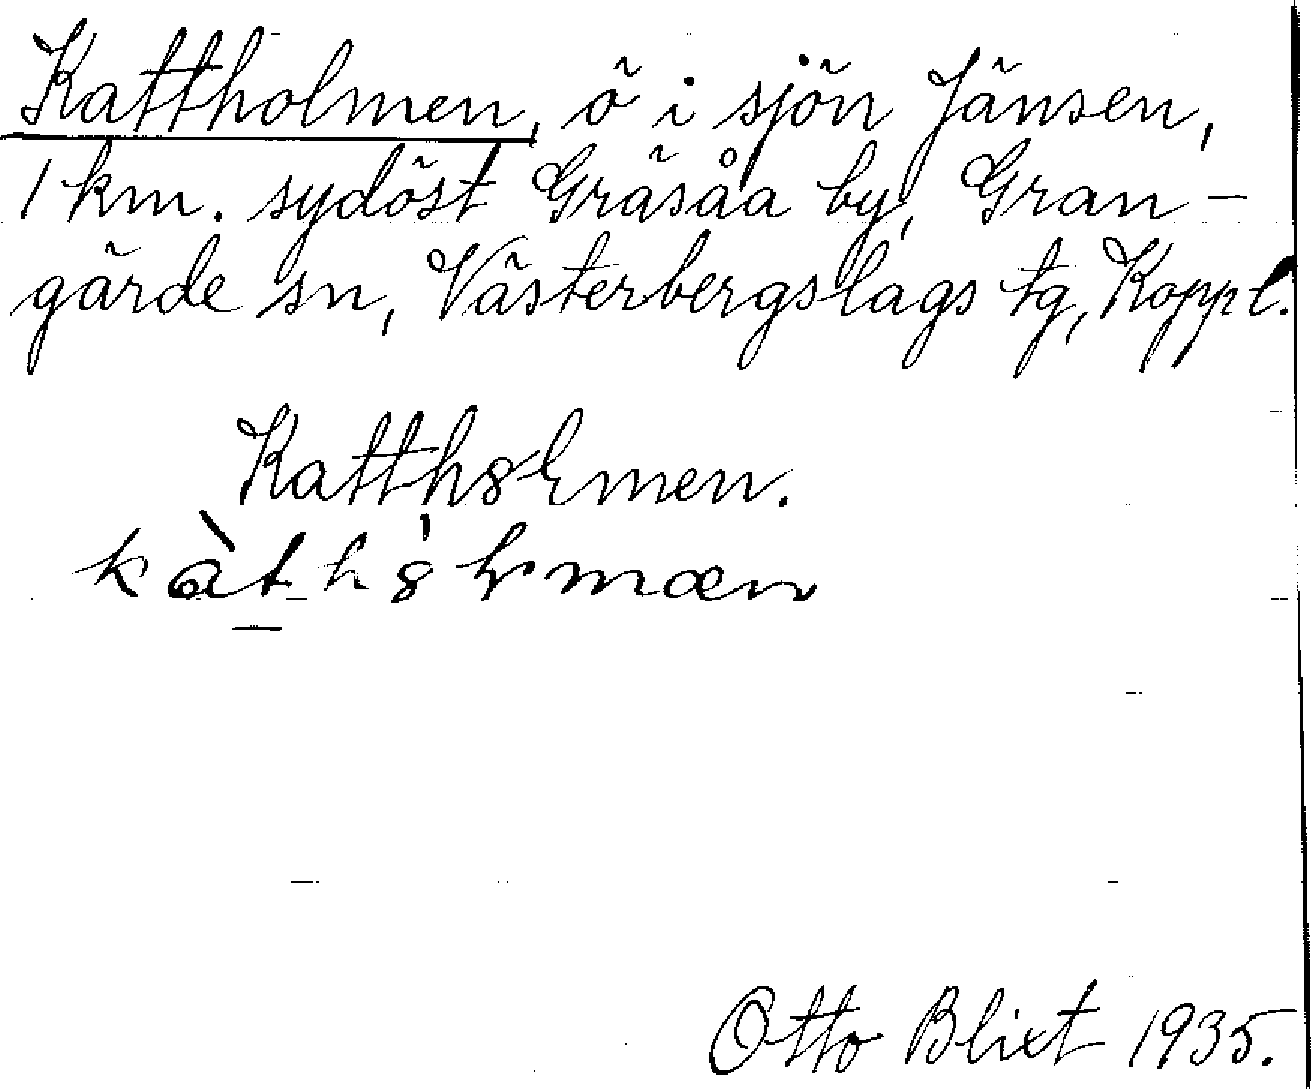 Kattholmen, ö i sjön Jänsen,
1 km. sydöst Gräsåa by, Gran-
gärde sn, Västerbergslags tg, Koppl.
Katth
Otto Blixt 1935.